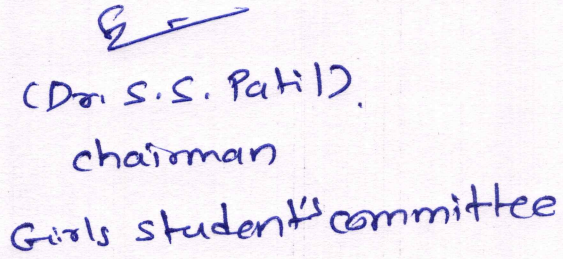 (Dr. S.S. Patil).
chairman
Girls student's committee